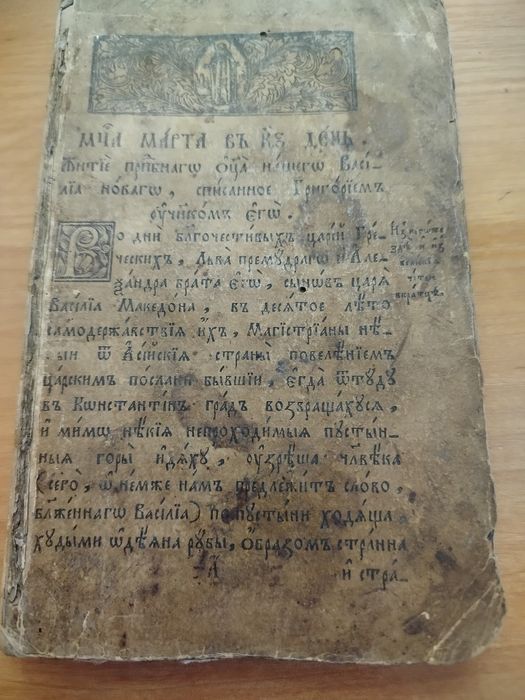 мц҃а марта въ к҃ѕ день.
Житїе прпⷣбнагѡ ѻц҃а нашегѡ Васі-
лїа новагѡ, списанное Григорїемъ
ѹ҆чн҃комъ є҆гѡ̀.
Во дни̑ бл҃гочести́выхъ царе́й Гре́-
ческихъ, Льва премꙋ́драгѡ и҆ Але-
ѯа́ндра бра́та є҆гѡ̀, сынѡ́въ царѧ̀
Васі́лїа Македо́на, въ деся́тое лѣ́то
самодержавствїѧ и҆́хъ, Магістрїа́ны нѣ́-
цыи ѿ А҆сі́йскїѧ страны̀ повелѣ́нїемъ
ца́рскимъ по́слани бы́вшїи, є҆гда̀ ѿтꙋ́дꙋ
въ Кѡнстанті́нь гра́дъ возвраща́хꙋсѧ,
и҆ ми́мѡ нѣ́кїѧ непроходи́мыѧ пꙋсты́н-
ныѧ го́ры и҆дѧ́хꙋ, ѹ҆зрѣ́ша чл҃вѣ́ка
(сего̀, ѡ҆ не́мже на́мъ предлежи́тъ сло́во,
бл҃же́ннагѡ Васі́лїа) по пꙋсты́ни ходѧ́ща,
хꙋды́ми ѡ҆дѣ́ѧна рꙋ́бы, ѻ҆́бразомъ стра́нна
А҃
и҆ стра́-